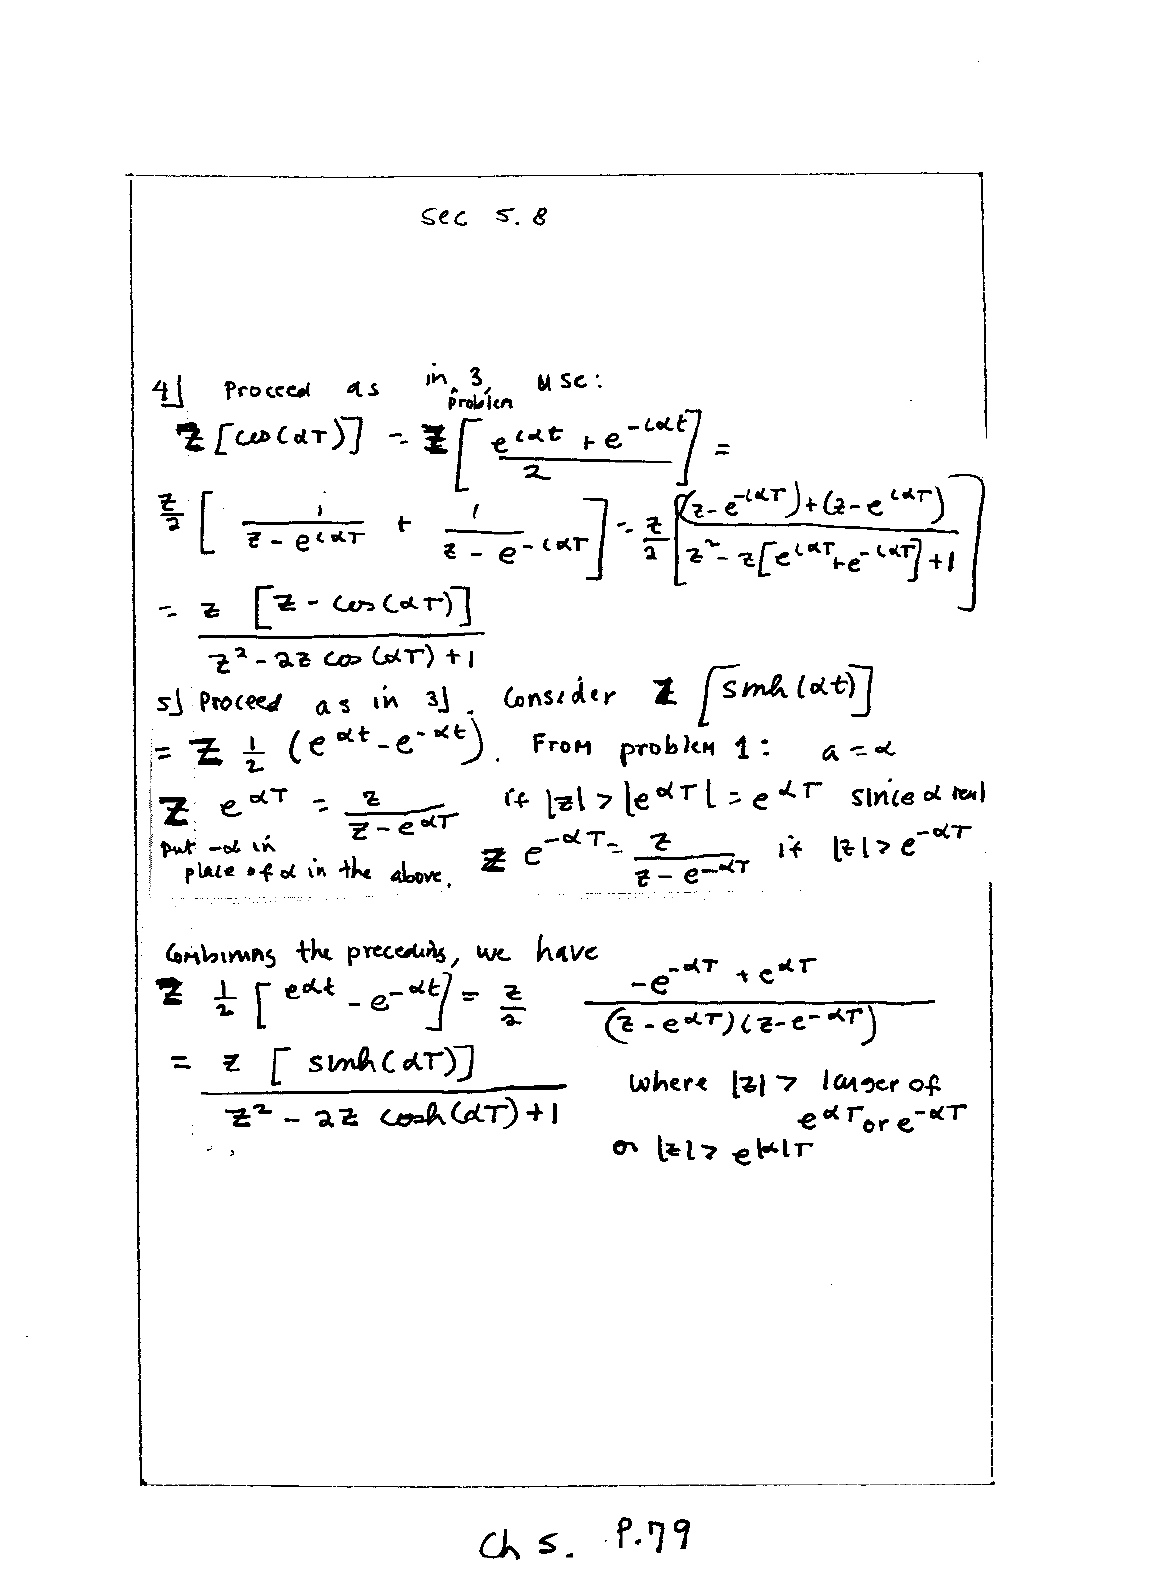 Sec 5.8
4] Proceed as in problem 3, use:
Z[cos(αT)] = Z[(e^{iαt} + e^{-iαt})/2] =
z/2 [1/(z - e^{iαT}) + 1/(z - e^{-iαT})] = z/2 [((z - e^{-iαT}) + (z - e^{iαT}))/(z² - z[e^{iαT} + e^{-iαT}] + 1)]
= z [z - cos(αT)] / (z² - 2z cos(αT) + 1)
5] Proceed as in 3]. Consider Z [sinh(αt)]
= Z 1/2 (e^{αt} - e^{-αt}). From problem 1: a = α
Z e^{αT} = z/(z - e^{αT}) if |z| > |e^{αT}| = e^{αT} since α real
put -α in place of α in the above. Z e^{-αT} = z/(z - e^{-αT}) if |z| > e^{-αT}
Combining the preceding, we have
Z 1/2 [e^{αt} - e^{-αt}] = z/2 (-e^{-αT} + e^{αT})/((z - e^{αT})(z - e^{-αT}))
= z [sinh(αT)] / (z² - 2z cosh(αT) + 1) where |z| > larger of
e^{αT} or e^{-αT}
or |z| > e^{|α|T}
Ch 5. P.79